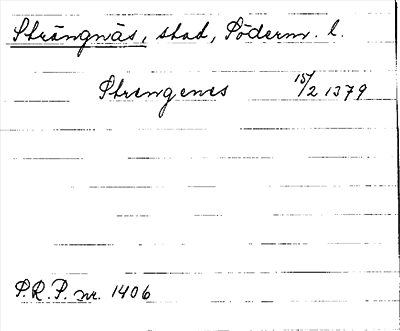 Strängnäs, stad, Söderm. l.
Strengenes 15/2 1379
P.R.P. nr. 1406